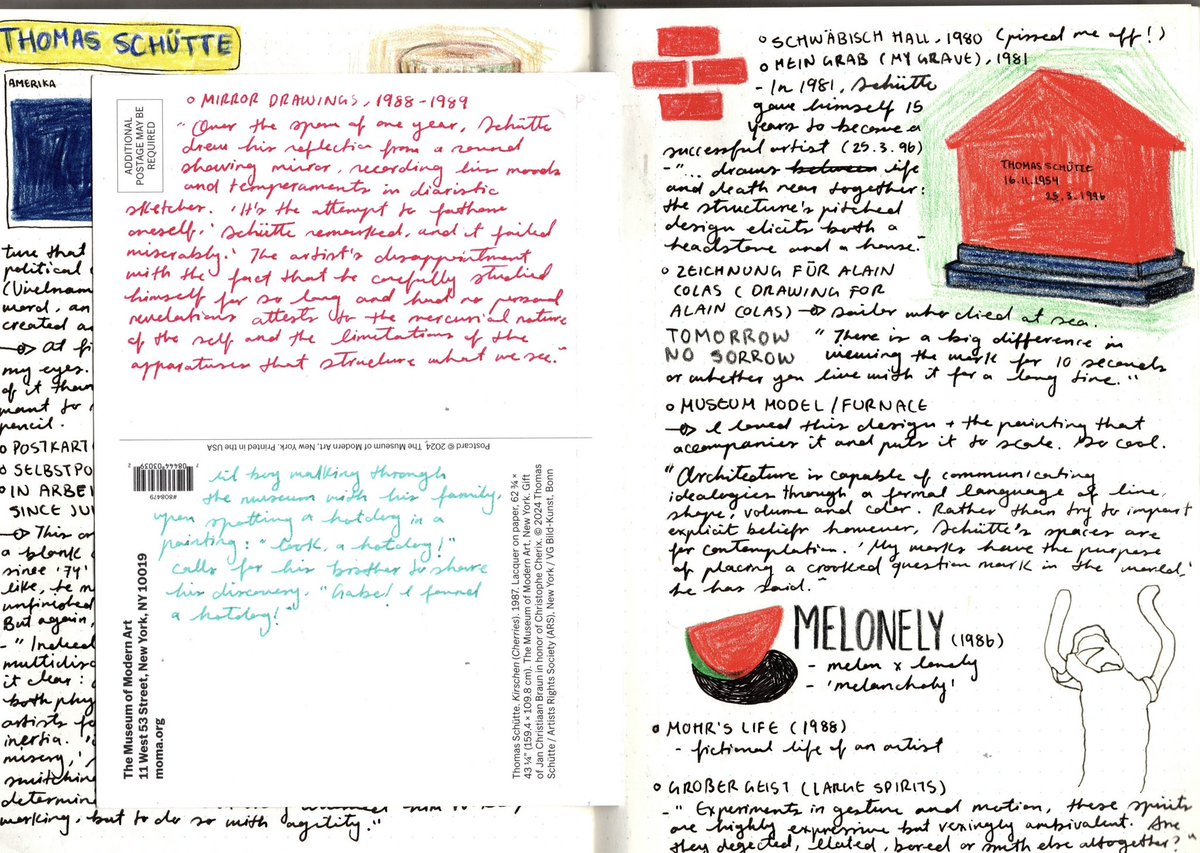 THOMAS SCHÜTTE
AMERIKA
ture that
political
word, an
created a
my eyes.
of it than
meant to
pencil.
o POSTKART
o SELBSTPO
o IN ARBEI
SINCE JU
a blank
since '74'
like, he m
unfinished
But again,
- "Indeed
multidisc
it clear:
both phy
artists fo
inertia.
misery,'
switchin
determine
working, but to do so with agility."
ADDITIONAL
POSTAGE MAY BE
REQUIRED
o MIRROR DRAWINGS, 1988-1989
"Over the span of one year, Schütte
drew his reflection from a round
shaving mirror, recording his moods
and temperaments in diaristic
sketches. 'It's the attempt to fathom
oneself,' Schütte remarked, and it failed
miserably.' The artist's disappointment
with the fact that he carefully studied
himself for so long and had no personal
revelations attests to the mercurial nature
of the self and the limitations of the
apparatuses that structure what we see."
Postcard © 2024, The Museum of Modern Art, New York. Printed in the USA
7 08444 03039 2
#808479
lil boy walking through
the museum with his family,
upon spotting a hotdog in a
painting: "look, a hotdog!"
calls for his brother to share
his discovery. "Gabe! I found
a hotdog!"
The Museum of Modern Art
11 West 53 Street, New York, NY 10019
moma.org
Thomas Schütte. Kirschen (Cherries). 1987. Lacquer on paper, 62 ¾ ×
43 ¼" (159.4 × 109.8 cm). The Museum of Modern Art, New York. Gift
of Jan Christiaan Braun in honor of Christophe Cherix. © 2024 Thomas
Schütte / Artists Rights Society (ARS), New York / VG Bild-Kunst, Bonn
o SCHWÄBISCH HALL, 1980 (pissed me off!)
o MEIN GRAB (MY GRAVE), 1981
- In 1981, Schütte
gave himself 15
years to become a
successful artist (25.3.96)
- "... draws between life
and death near together:
the structure's pitched
design elicits both a
headstone and a house."
THOMAS SCHÜTTE
16.11.1954
25.3.1996
o ZEICHNUNG FÜR ALAIN
COLAS (DRAWING FOR
ALAIN COLAS) → sailor who died at sea.
TOMORROW
NO SORROW
"There is a big difference in
viewing the work for 10 seconds
or whether you live with it for a long time."
o MUSEUM MODEL/FURNACE
→ I loved this design + the painting that
accompanies it and puts it to scale. So cool.
"Architecture is capable of communicating
ideologies through a formal language of line,
shape, volume and color. Rather than try to impart
explicit beliefs however, Schütte's spaces are
for contemplation. 'My works have the purpose
of placing a crooked question mark in the world,'
he has said."
MELONELY (1986)
- melon x lonely
- 'melancholy'
o MOHR'S LIFE (1988)
- fictional life of an artist
o GROßER GEIST (LARGE SPIRITS)
- "Experiments in gesture and motion, these spirits
are highly expressive but vexingly ambivalent. Are
they dejected, elated, bored or smth else altogether?"